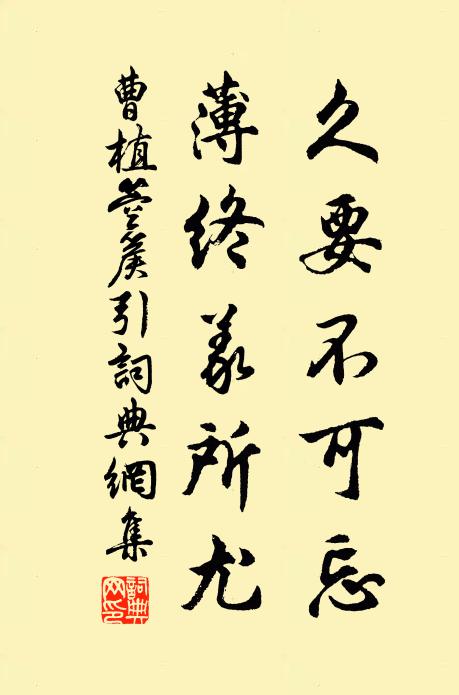 久要不可忘
薄終義所尤
曹植箜篌引詞典網集
詞典網印